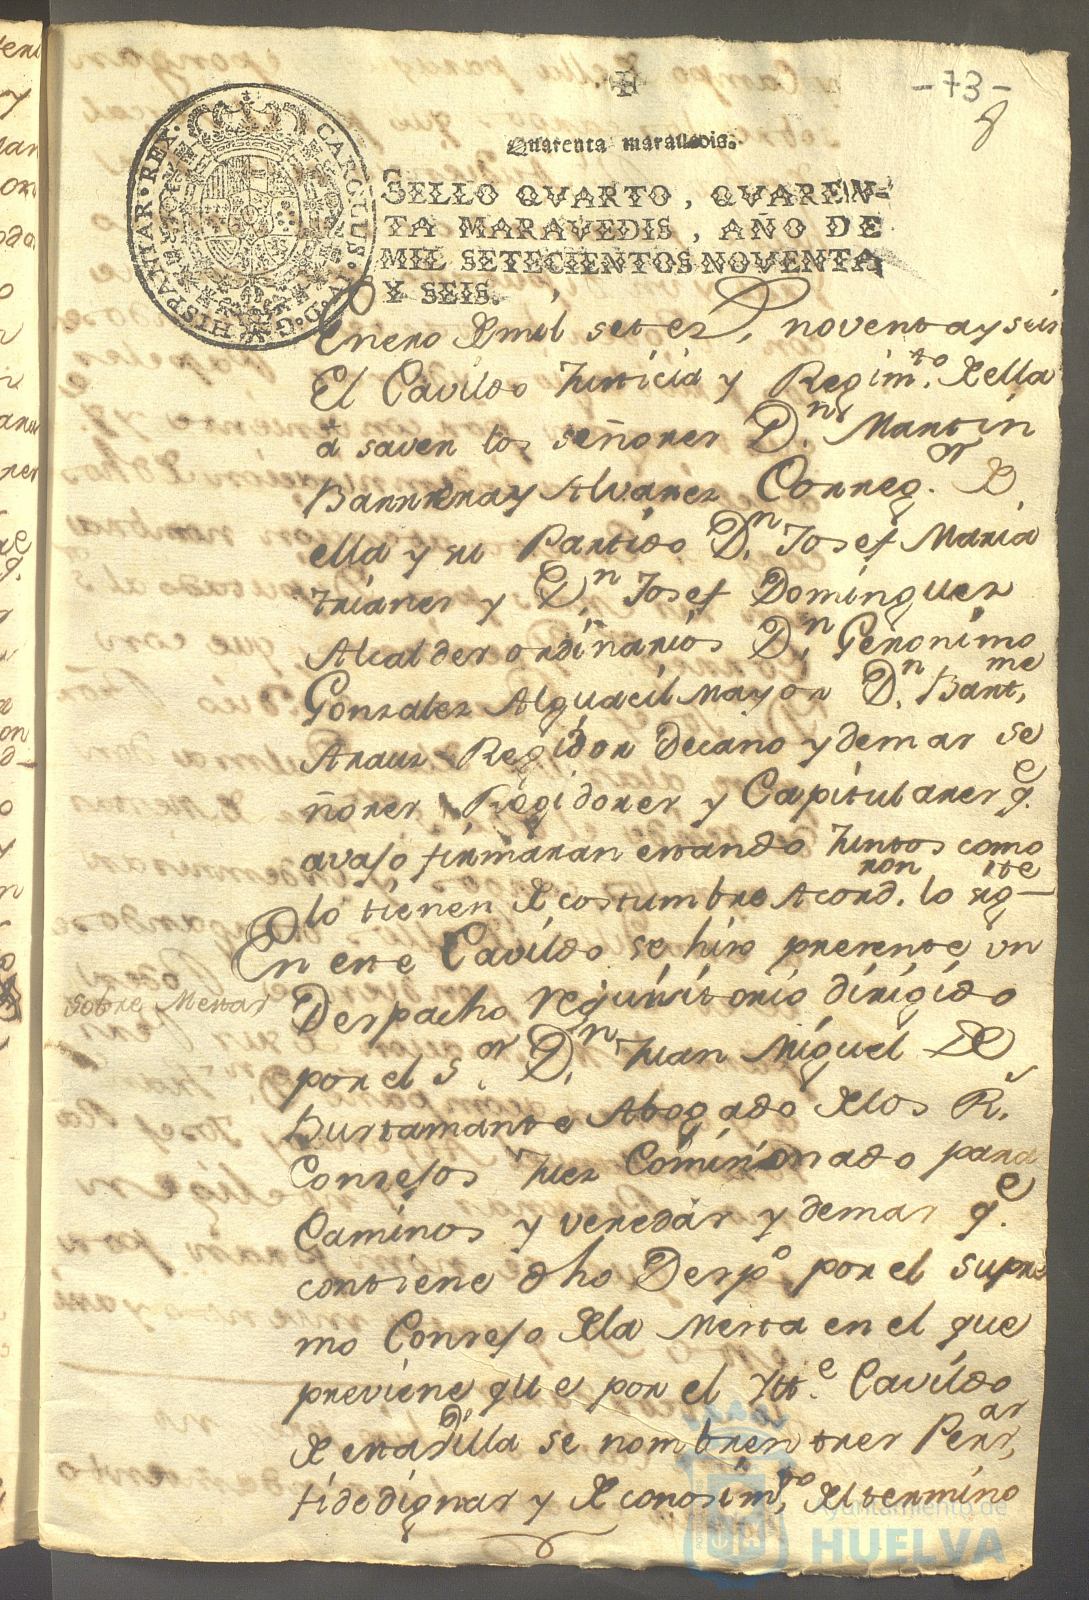 -73-
8
Quarenta maravedis.
SELLO QVARTO, QVAREN-
TA MARAVEDIS, AÑO DE
MIL SETECIENTOS NOVENTA
Y SEIS.
CAROLUS · IV · D · G · HISPANIAR · REX ·
Enero de mil setez.s noventa y seis
El Cavildo Justicia y Regim.to de ella
a saver los señores D.ns Martin
Barrrera y Alvarez Correg.or de
ella y su Partido D.n Josef Maria
trianes y D.n Josef Dominguez
Alcaldes ordinarios D.n Geronimo
Gonzalez Alguacil mayor D.n Bart.me
Arauz Regidor decano y demas se
ñores Regidores y Capitulares q.e
avajo firmaran estando Juntos como
lo tienen de costumbre Acord.ron lo sig.ite
En este Cavildo se hizo presente un
sobre Mestas
Despacho requisitorio dirigido
por el S.or D.n Juan Miguel de
Bustamante Abogado de los R.s
Consejos Juez Comisionado para
Caminos y veredas y demas q.e
contiene dho Desp.o por el supre
mo Consejo de la Mesta en el que
previene que por el Ytt.e Cavildo
de esta villa se nombren tres Pers.as
fidedignas y de conosim.to del termino
Ayuntamiento de
HUELVA